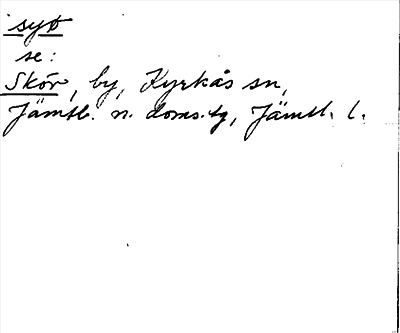 syd
se:
Skör, by, Kyrkås sn,
Jämtl. n. doms.tg, Jämtl. l.